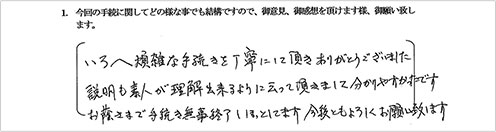 1. 今回の手続に関してどの様な事でも結構ですので、御意見、御感想を頂けます様、御願い致し
ます。
いろへ煩雑な手続きを丁寧にして頂きありがとうございました
説明も素人が理解出来るように云って頂きまして分かりやすかったです
お蔭さまで手続き無事終了しほっとしてます 今後ともよろしくお願い致します